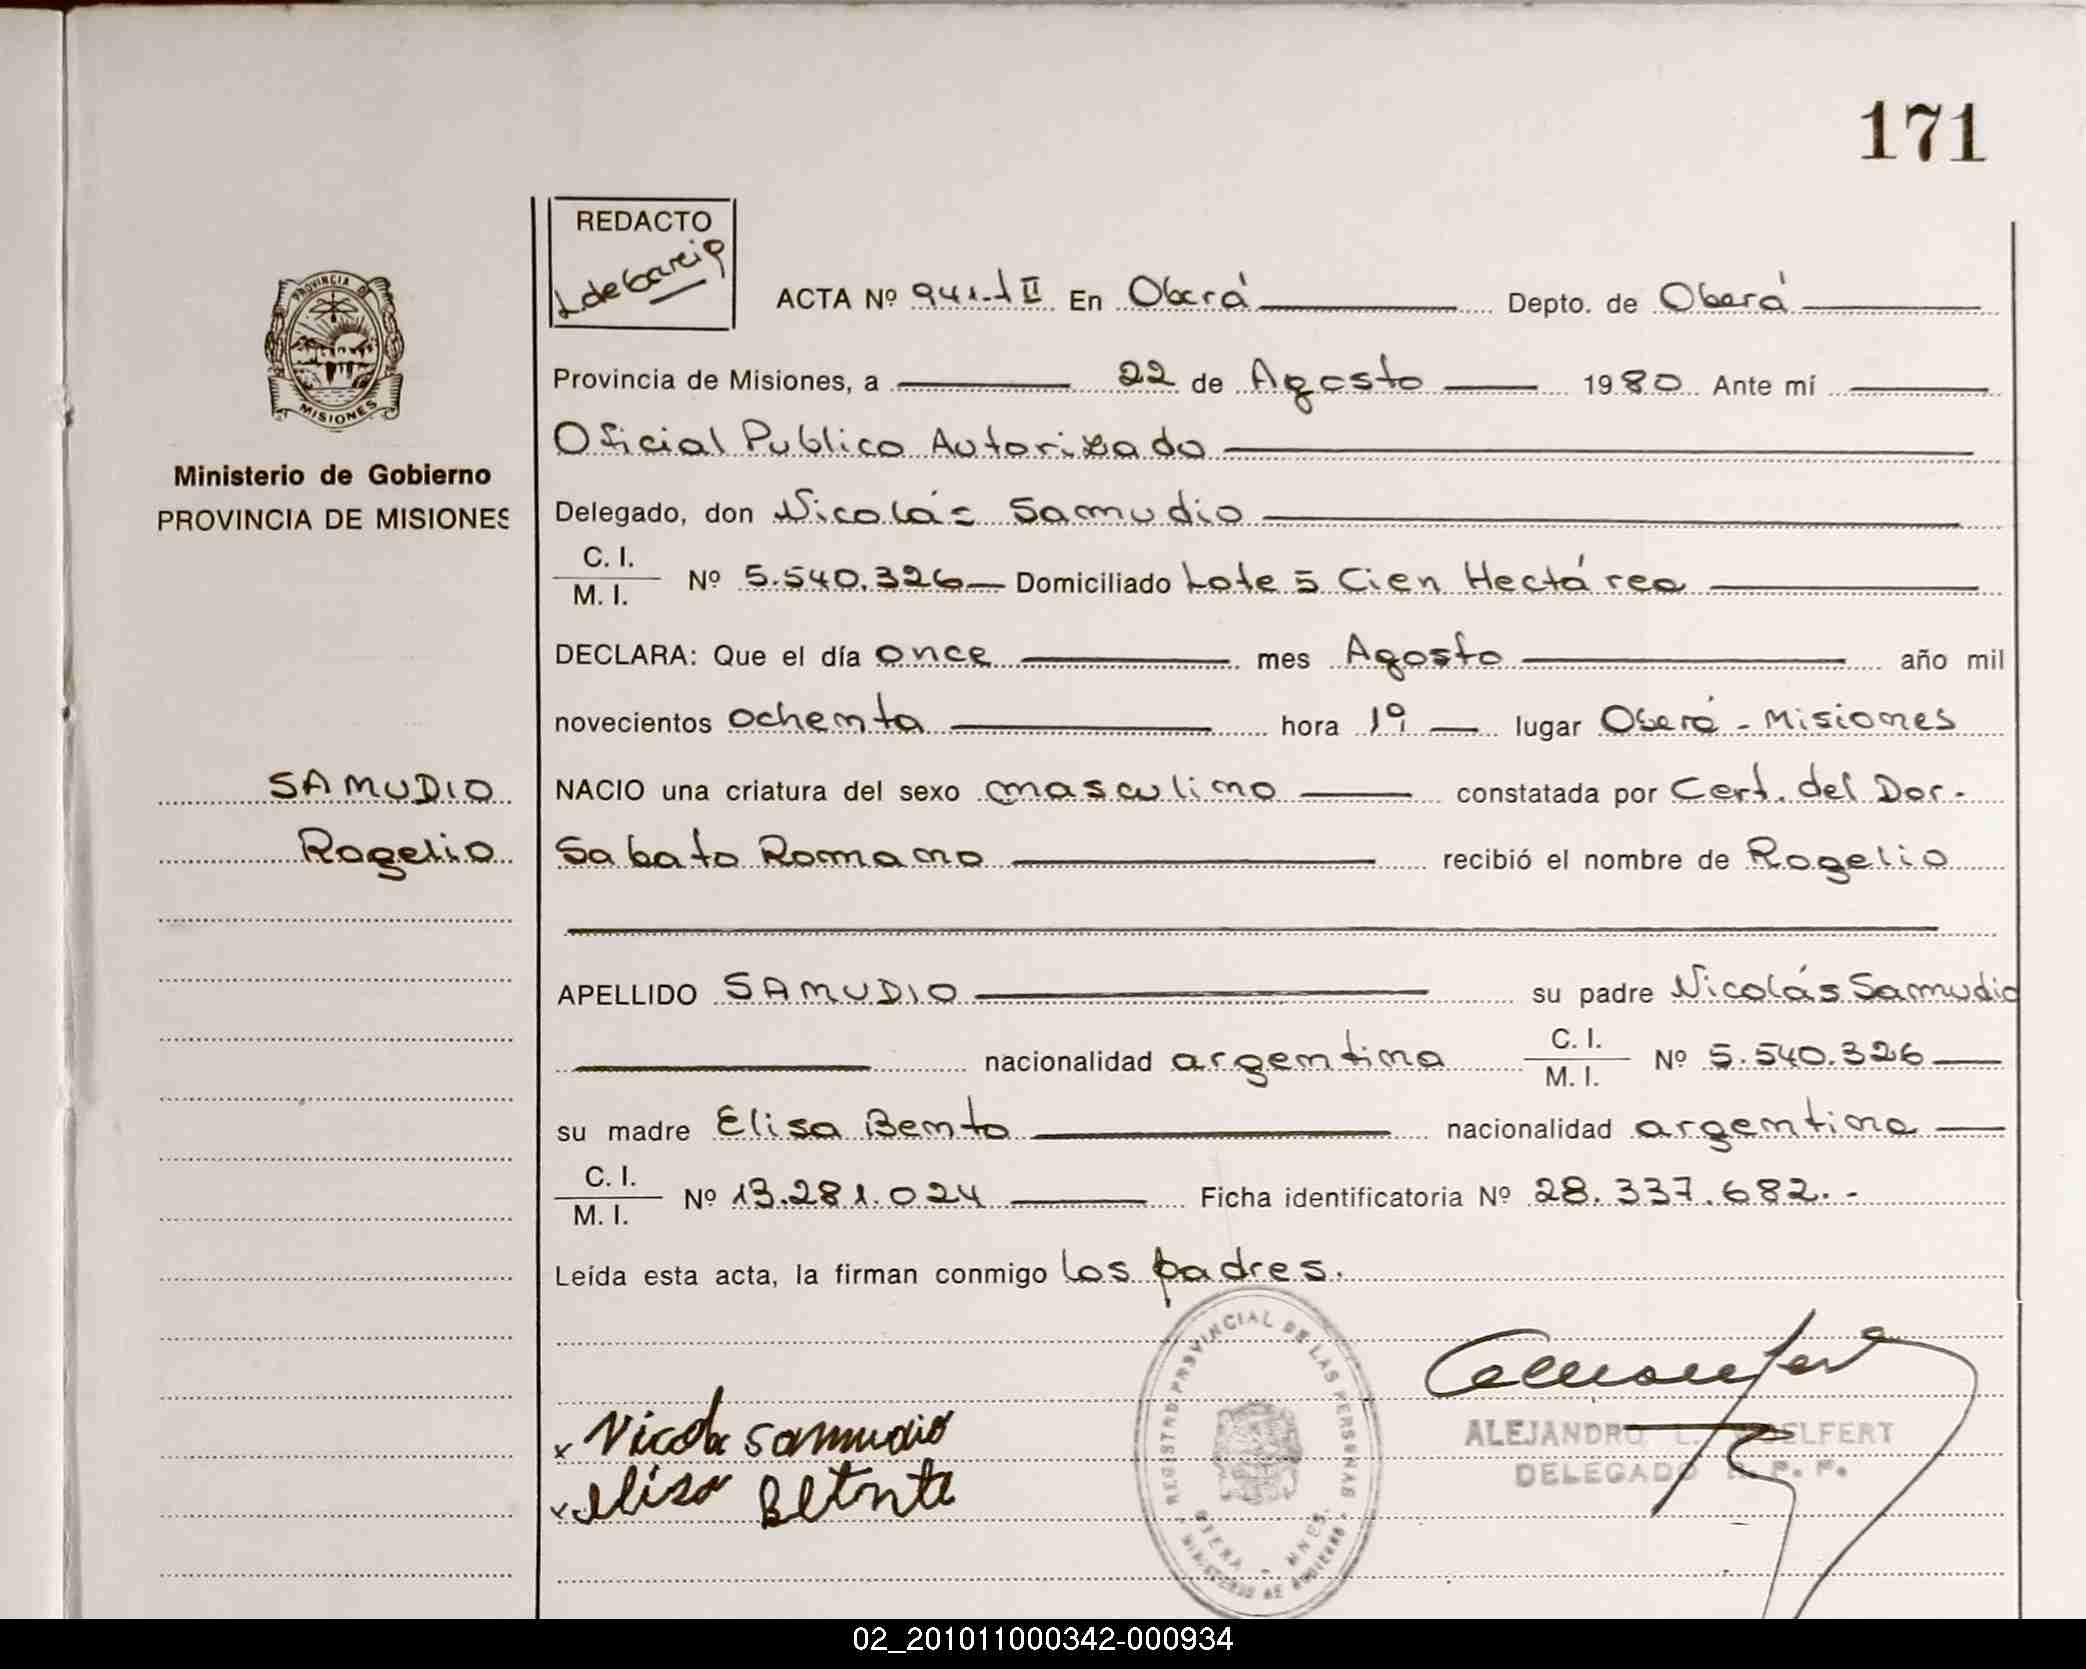 171
REDACTO
L de Gareis
PROVINCIA DE
MISIONES
ACTA Nº 941-T II En Oberá Depto. de Oberá
Provincia de Misiones, a 22 de Agosto 1980 Ante mí
Oficial Publico Autorizado
Ministerio de Gobierno
PROVINCIA DE MISIONES
Delegado, don Nicolás Samudio
C. I.
M. I. Nº 5.540.326 Domiciliado Lote 5 Cien Hectárea
DECLARA: Que el día once mes Agosto año mil
novecientos ochenta hora 19 lugar Oberá - Misiones
SAMUDIO
Rogelio
NACIO una criatura del sexo masculino constatada por Cert. del Dor.
Sabato Romano recibió el nombre de Rogelio
APELLIDO SAMUDIO su padre Nicolás Samudio
nacionalidad argentina C. I. M. I. Nº 5.540.326
su madre Elisa Bento nacionalidad argentina
C. I.
M. I. Nº 13.281.024 Ficha identificatoria Nº 28.337.682.-
Leída esta acta, la firman conmigo los padres.
REGISTRO PROVINCIAL DE LAS PERSONAS
OBERA - MNES.
MINISTERIO DE GOBIERNO
x Nicola Samudio
x elisa
ALEJANDRO L. ELFERT
DELEGADO R. P. P.
02_201011000342-000934